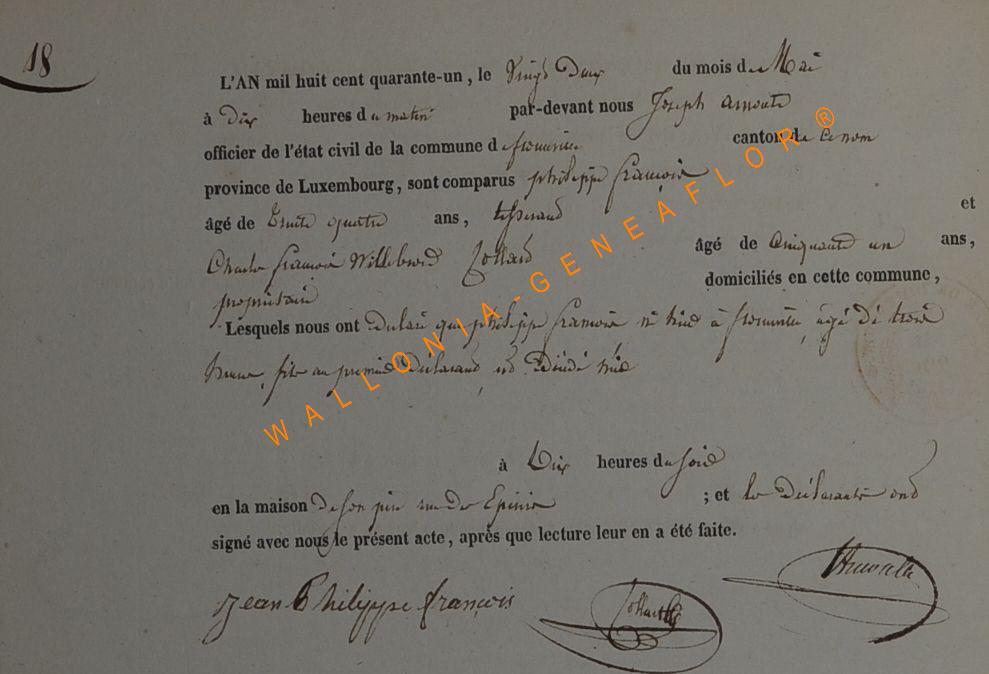 18
L'AN mil huit cent quarante-un, le Vingt Deux du mois de Mai
à Dix heures du matin par-devant nous Joseph
officier de l'état civil de la commune de canton de ce nom
province de Luxembourg, sont comparus philippe francois
âgé de trente quatre ans, tisserand et
Charles francois Willebrord Collard âgé de Cinquante un ans,
propriétaire domiciliés en cette commune,
Lesquels nous ont Declaré que philippe francois né à agé de trois
fils au premier Déclarant, est Décédé
à Dix heures du soir
en la maison de son père rue des ; et les Déclarants ont
signé avec nous le présent acte, après que lecture leur en a été faite.
jean Philippe francois
WALLONIA-GENEAFLOR®